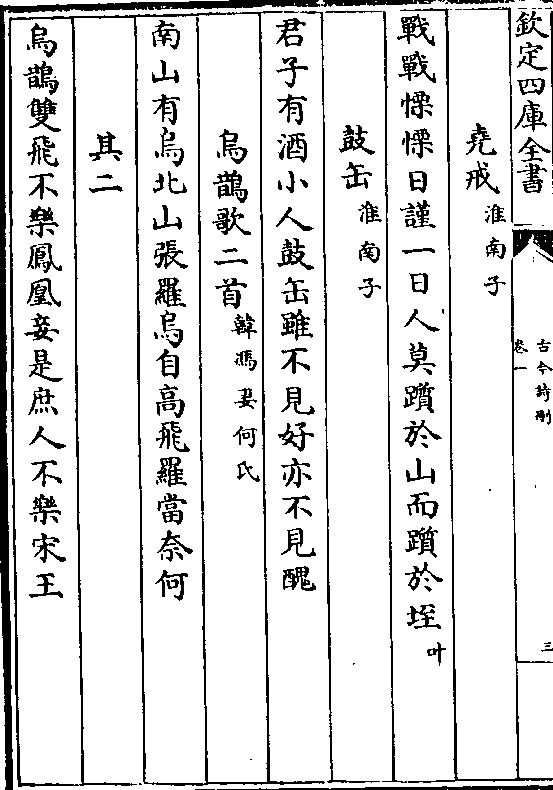 欽定四庫全書
古今詩刪
卷一
三
堯戒淮南子
戰戰慄慄日謹一日人莫躓於山而躓於垤叶
鼓缶淮南子
君子有酒小人鼓缶雖不見好亦不見醜
烏鵲歌二首韓馮妻何氏
南山有烏北山張羅烏自高飛羅當奈何
其二
烏鵲雙飛不樂鳳凰妾是庶人不樂宋王